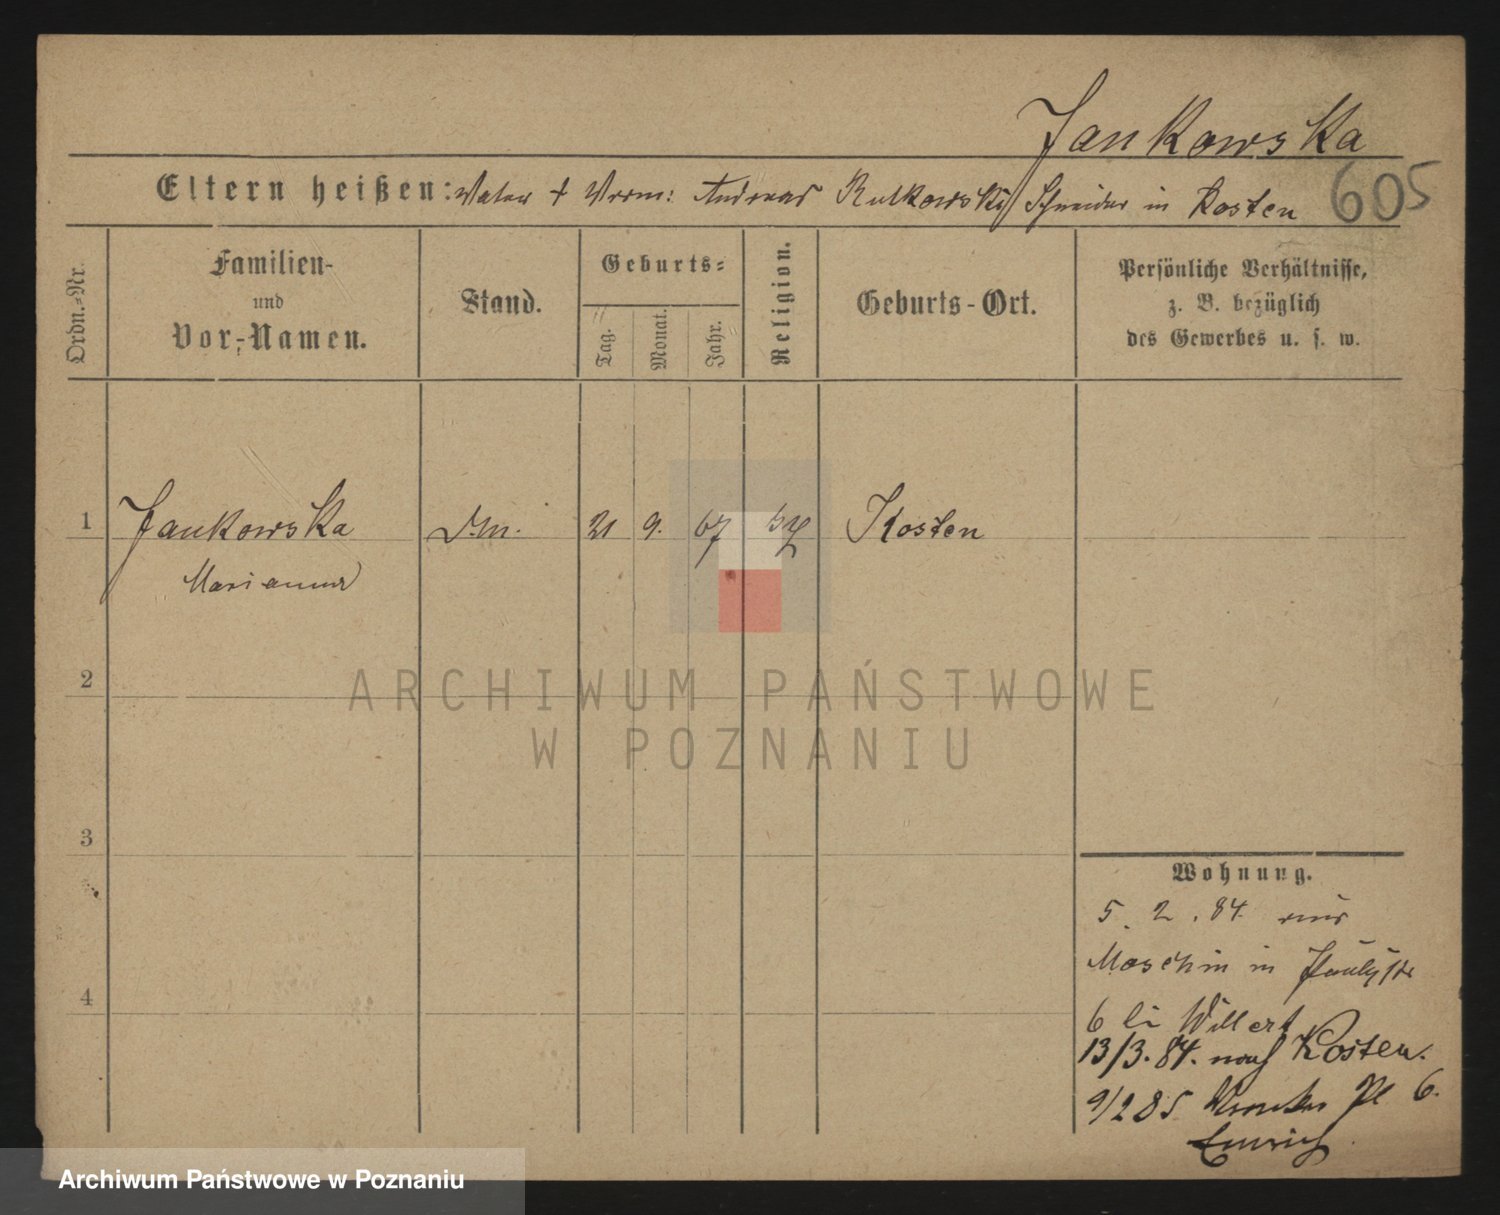 Jankowska
Eltern heißen: Vater † Vorm: Andreas Rutkowski, Schneider in Kosten 605
Ordn.-Nr.
Familien-
und
Vor-Namen.
Stand.
Geburts-
Tag. Monat. Jahr.
Religion.
Geburts-Ort.
Persönliche Verhältnisse,
z. B. bezüglich
des Gewerbes u. s. w.
1 Jankowska D.M. 21 9. 67 Kosten
Marianna
2
3
4
Wohnung.
5. 2. 84 aus
Moschin in
6 bei Willert
13/3. 84. nach Kosten.
9/2 85 Pl 6.
Emrich
ARCHIWUM PAŃSTWOWE
W POZNANIU
Archiwum Państwowe w Poznaniu